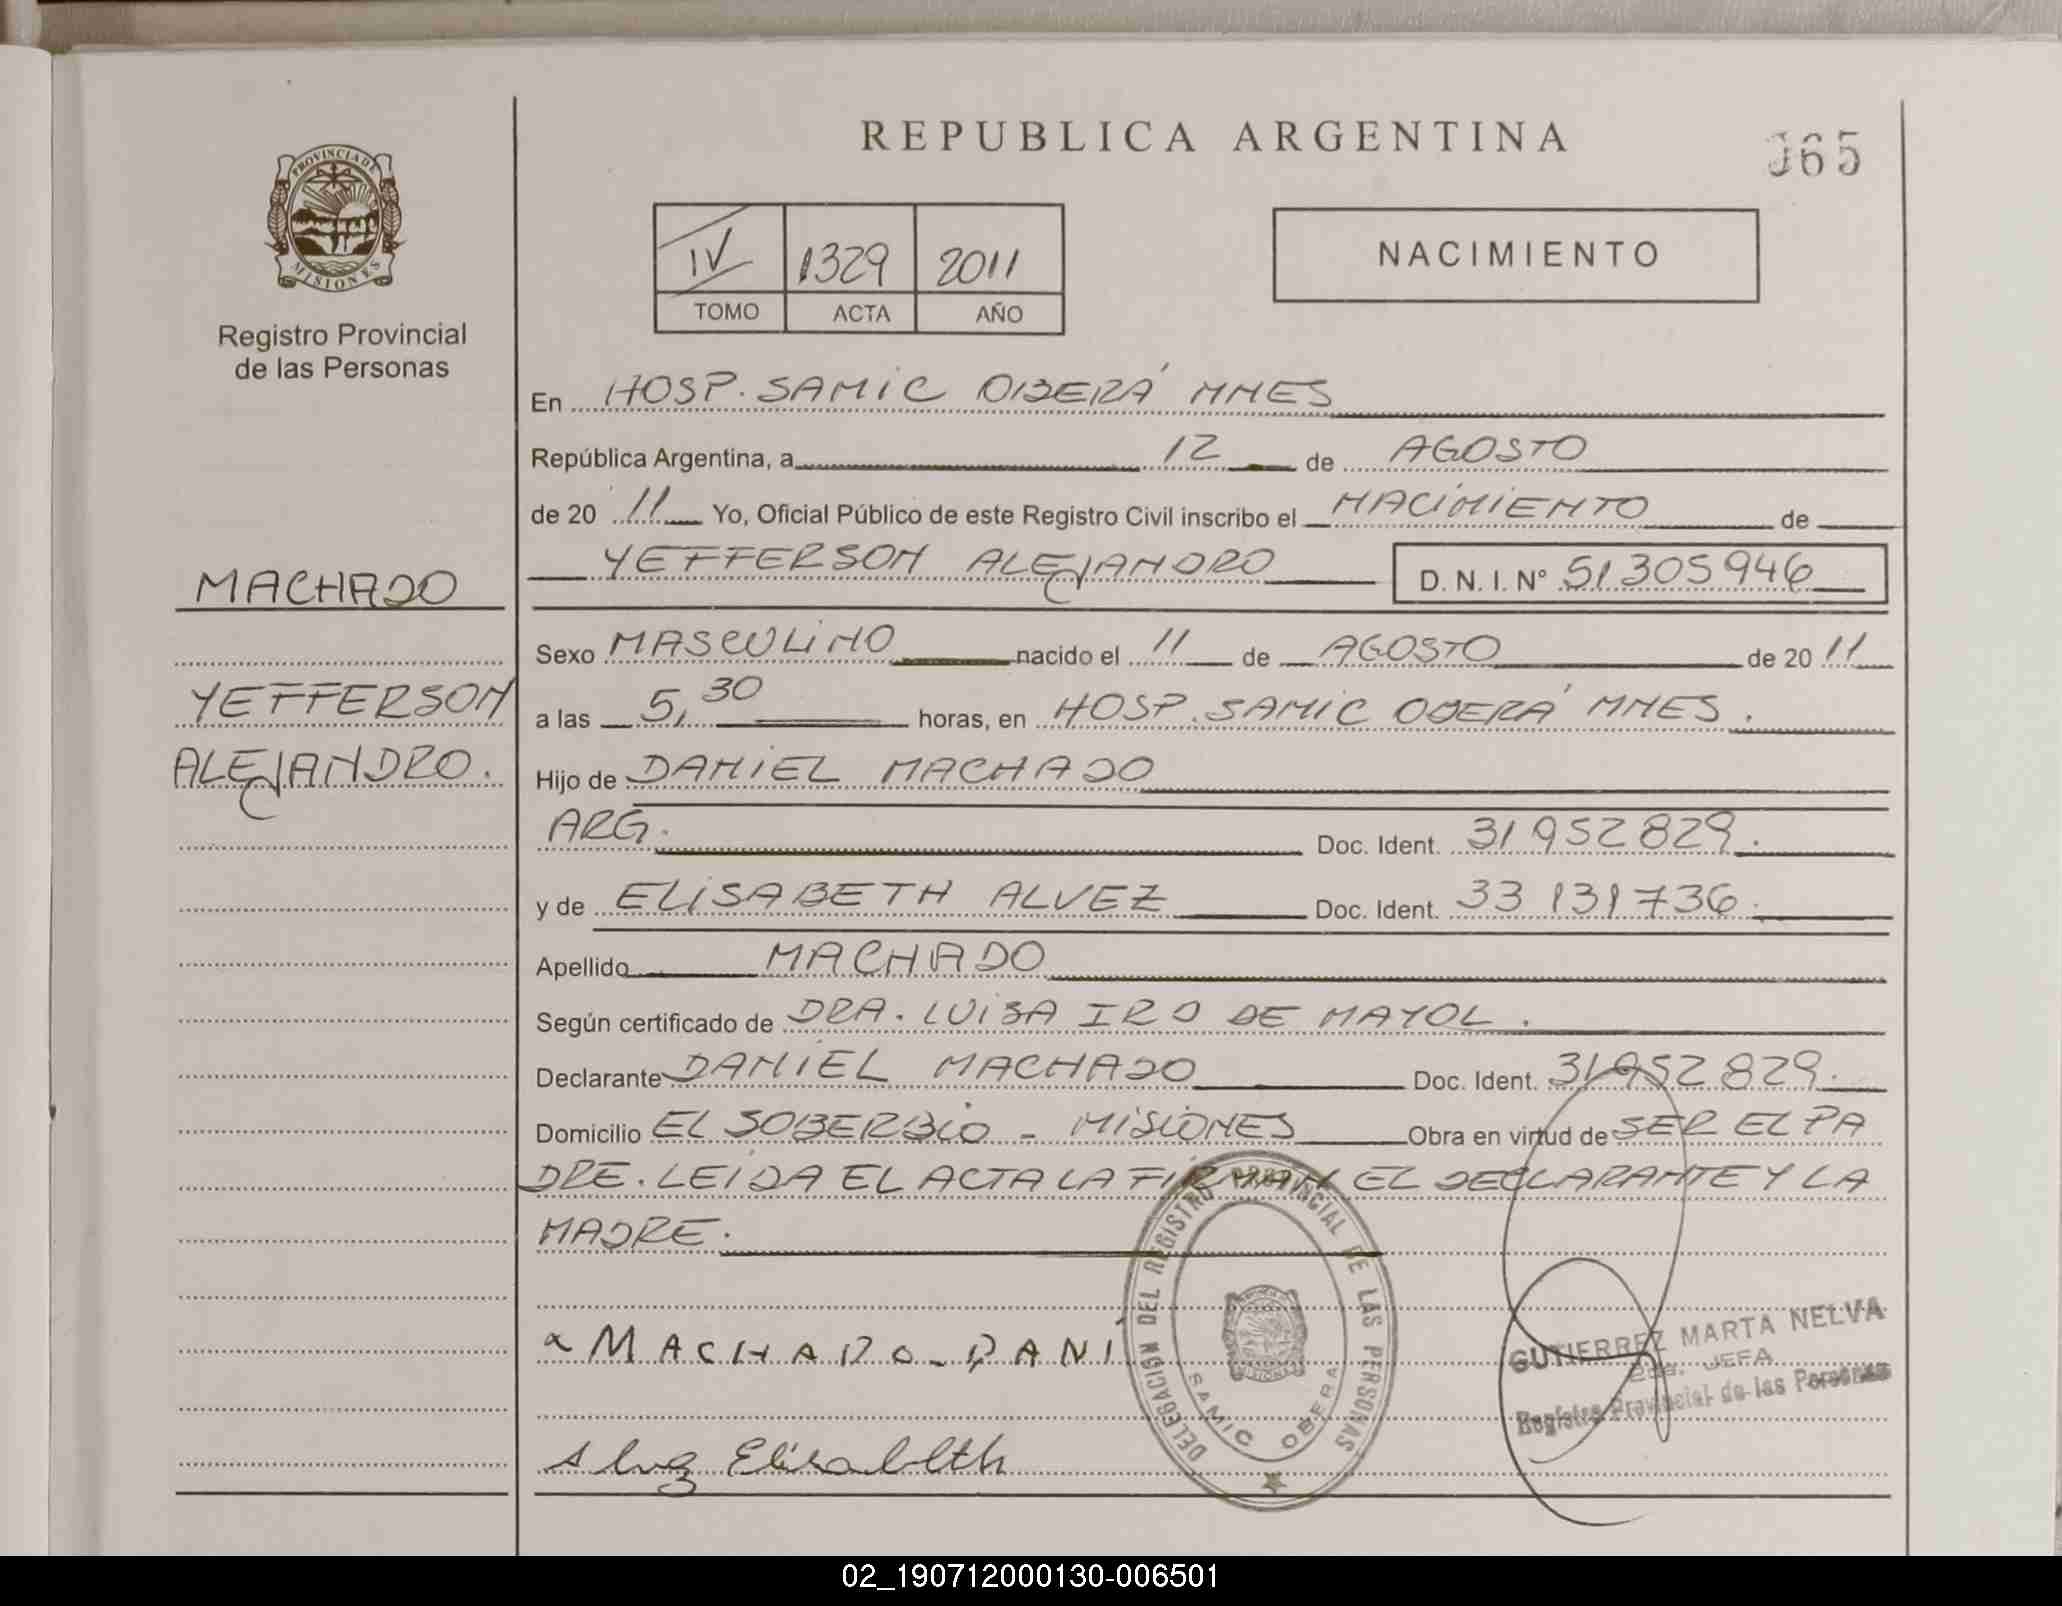 REPUBLICA ARGENTINA
065
PROVINCIA DE
MISIONES
Registro Provincial
de las Personas
IV 1329 2011
TOMO ACTA AÑO
NACIMIENTO
En HOSP. SAMIC OBERÁ MNES
República Argentina, a 12 de AGOSTO
de 20 11 Yo, Oficial Público de este Registro Civil inscribo el NACIMIENTO de
YEFFERSON ALEJANDRO D.N.I. Nº 51.305946
MACHADO
YEFFERSON
ALEJANDRO.
Sexo MASCULINO nacido el 11 de AGOSTO de 20 11
a las 5,30 horas, en HOSP. SAMIC OBERÁ MNES.
Hijo de DANIEL MACHADO
ARG. Doc. Ident. 31952829.
y de ELISABETH ALVEZ Doc. Ident. 33131736.
Apellido MACHADO
Según certificado de DRA. LUISA IRO DE MAYOL.
Declarante DANIEL MACHADO Doc. Ident. 31952829.
Domicilio EL SOBERBIO - MISIONES Obra en virtud de SER EL PA
DRE. LEIDA EL ACTA LA FIRMAN EL DECLARANTE Y LA
MADRE.
MACHADO-DANI
Alvez Elisabeth
DELEGACION DEL REGISTRO PROVINCIAL DE LAS PERSONAS
SAMIC OBERA
GUTIERREZ MARTA NELVA
2da. JEFA
Registro Provincial de las Personas
02_190712000130-006501